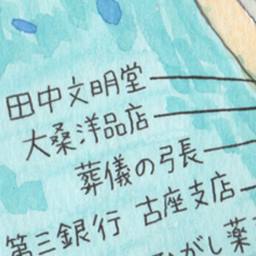 田中文明堂
大桑洋品店
葬儀の弓長
第三銀行 古座支店
がし薬